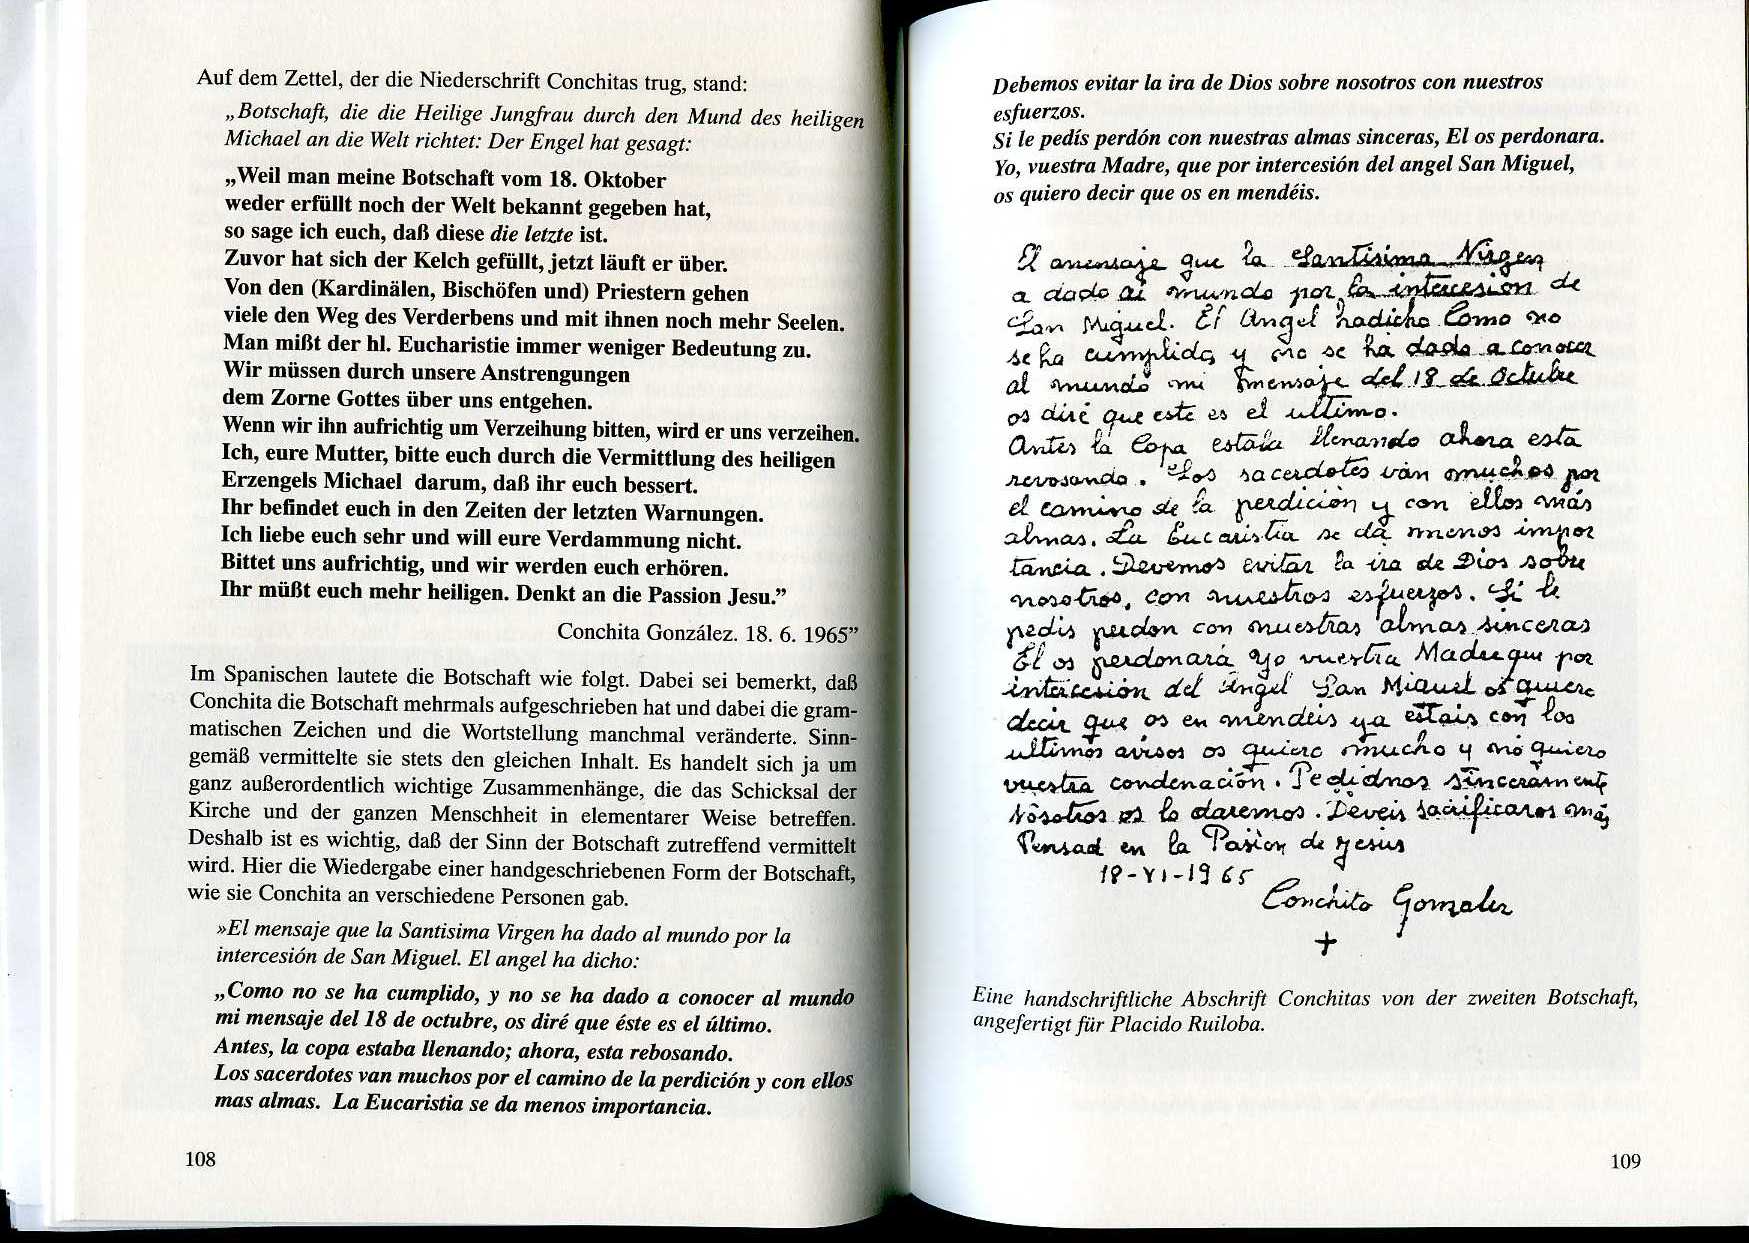 Auf dem Zettel, der die Niederschrift Conchitas trug, stand:
„Botschaft, die die Heilige Jungfrau durch den Mund des heiligen
Michael an die Welt richtet: Der Engel hat gesagt:
„Weil man meine Botschaft vom 18. Oktober
weder erfüllt noch der Welt bekannt gegeben hat,
so sage ich euch, daß diese die letzte ist.
Zuvor hat sich der Kelch gefüllt, jetzt läuft er über.
Von den (Kardinälen, Bischöfen und) Priestern gehen
viele den Weg des Verderbens und mit ihnen noch mehr Seelen.
Man mißt der hl. Eucharistie immer weniger Bedeutung zu.
Wir müssen durch unsere Anstrengungen
dem Zorne Gottes über uns entgehen.
Wenn wir ihn aufrichtig um Verzeihung bitten, wird er uns verzeihen.
Ich, eure Mutter, bitte euch durch die Vermittlung des heiligen
Erzengels Michael darum, daß ihr euch bessert.
Ihr befindet euch in den Zeiten der letzten Warnungen.
Ich liebe euch sehr und will eure Verdammung nicht.
Bittet uns aufrichtig, und wir werden euch erhören.
Ihr müßt euch mehr heiligen. Denkt an die Passion Jesu.”
Conchita González. 18. 6. 1965”
Im Spanischen lautete die Botschaft wie folgt. Dabei sei bemerkt, daß
Conchita die Botschaft mehrmals aufgeschrieben hat und dabei die gram-
matischen Zeichen und die Wortstellung manchmal veränderte. Sinn-
gemäß vermittelte sie stets den gleichen Inhalt. Es handelt sich ja um
ganz außerordentlich wichtige Zusammenhänge, die das Schicksal der
Kirche und der ganzen Menschheit in elementarer Weise betreffen.
Deshalb ist es wichtig, daß der Sinn der Botschaft zutreffend vermittelt
wird. Hier die Wiedergabe einer handgeschriebenen Form der Botschaft,
wie sie Conchita an verschiedene Personen gab.
»El mensaje que la Santisima Virgen ha dado al mundo por la
intercesión de San Miguel. El angel ha dicho:
„Como no se ha cumplido, y no se ha dado a conocer al mundo
mi mensaje del 18 de octubre, os diré que éste es el último.
Antes, la copa estaba llenando; ahora, esta rebosando.
Los sacerdotes van muchos por el camino de la perdición y con ellos
mas almas. La Eucaristia se da menos importancia.
108
Debemos evitar la ira de Dios sobre nosotros con nuestros
esfuerzos.
Si le pedís perdón con nuestras almas sinceras, El os perdonara.
Yo, vuestra Madre, que por intercesión del angel San Miguel,
os quiero decir que os en mendéis.
El mensaje que la Santísima Virgen
a dado al mundo por la intercesión de
San Miguel. El Angel hadicho Como no
se ha cumplido y no se ha dado a conocer
al mundo mi mensaje del 18 de Octubre
os diré que este es el ultimo.
Antes la Copa estaba llenando ahora esta
revosando. Los sacerdotes ván muchos por
el camino de la perdición y con ellos más
almas. La Eucaristía se dá menos impor
tancia. Devemos evitar la ira de Dios sobre
nosotros, con nuestros esfuerzos. Si le
pedis perdon con nuestras almas sinceras
El os perdonará Yo vuestra Madre que por
intercesión del Ángel San Miguel os quiere
decir que os en mendéis ya estais con los
ultimos avisos os quiero mucho y no quiero
vuestra condenación. Pedidnos sinceramente
Nosotros os lo daremos. Deveis sacrificaros más
Pensad en la Pasion de Jesús
18-VI-1965
Conchita Gonzalez
+
Eine handschriftliche Abschrift Conchitas von der zweiten Botschaft,
angefertigt für Placido Ruiloba.
109